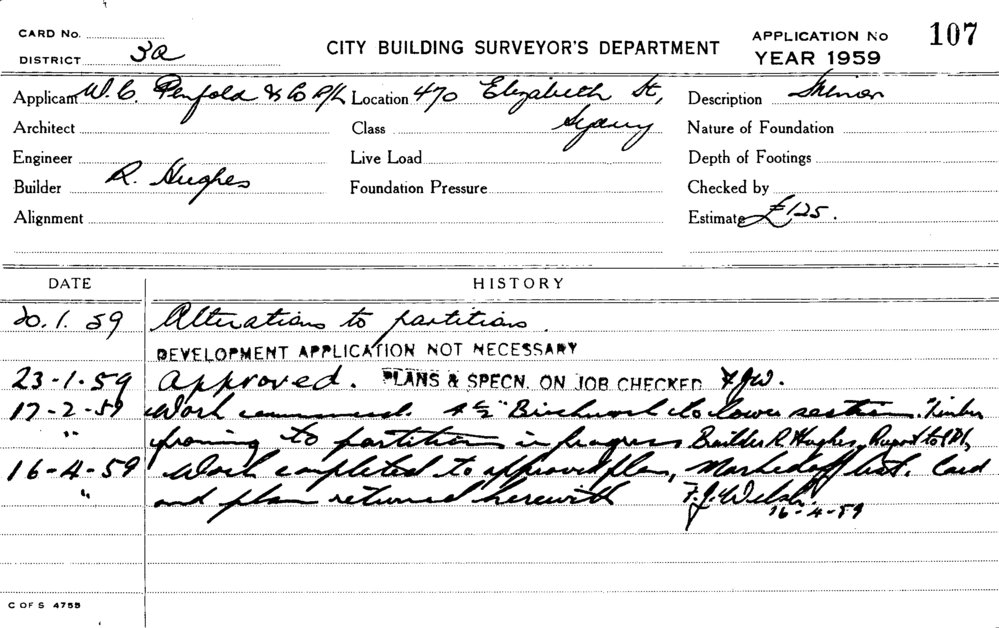 CARD No.
DISTRICT 3a
CITY BUILDING SURVEYOR'S DEPARTMENT
APPLICATION No 107
YEAR 1959
Applicant W. C. Penfold & Co P/L Location 470 Elizabeth St, Description
Architect Class Sydney Nature of Foundation
Engineer Live Load Depth of Footings
Builder R. Hughes Foundation Pressure Checked by
Alignment Estimate £125.
DATE HISTORY
20.1.59 Alterations to partitions.
DEVELOPMENT APPLICATION NOT NECESSARY
23-1-59 Approved. PLANS & SPECN. ON JOB CHECKED F.J.W.
17-2-59 Work commenced. 4½" Brickwork to lower section. Timber
" framing to partitions in progress Builder R. Hughes,
16-4-59 Work completed to approved plan, Marked off list. Card
" and plan returned herewith F.J. Welsh.
16-4-59
C OF S 4755